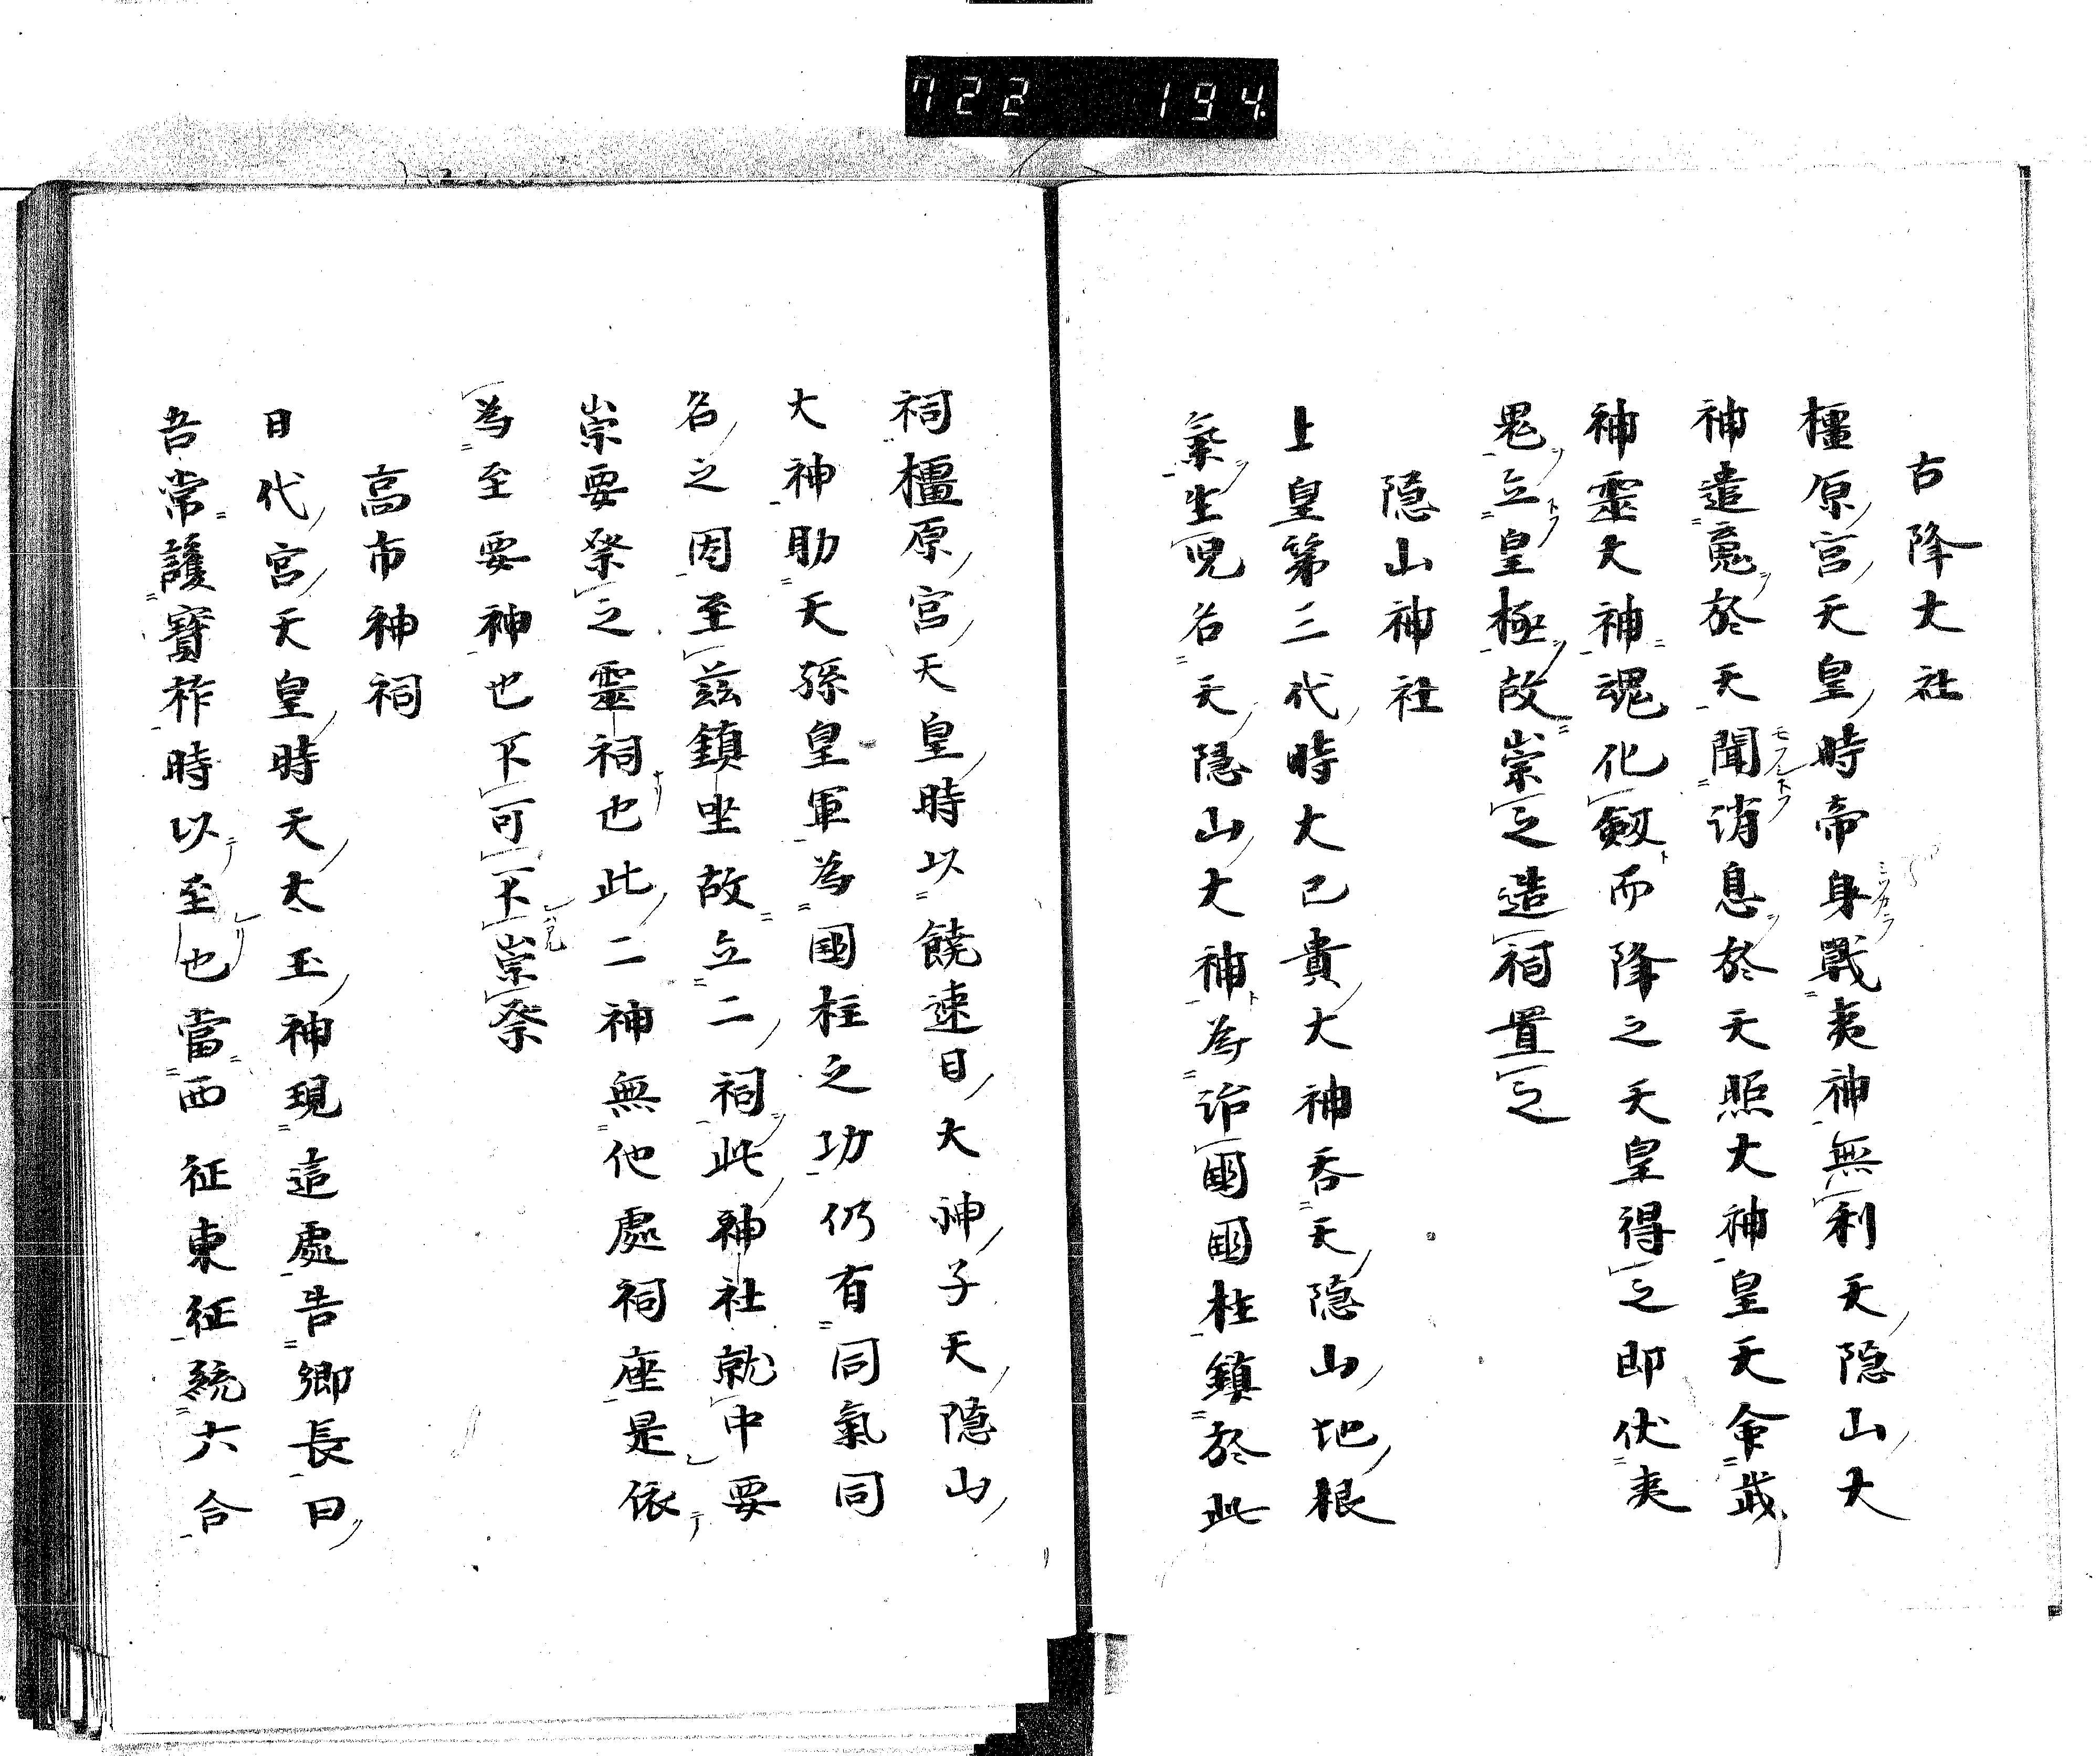 722 194
古降大社
橿原宮天皇時帝身戰夷神無利天隱山大
神遣䰟於天聞消息於天照大神皇天命武
神靈大神魂化劔而降之天皇得之即伏夷
鬼立皇極故崇之造祠置之
隱山神社
上皇第三代時大己貴大神吞天隱山地根
氣生兒名天隱山大神為治國國柱鎮於此
祠橿原宮天皇時以饒速日大神子天隱山
大神助天孫皇軍為國柱之功仍有同氣同
名之因至茲鎮坐故立二祠此神社就中要
崇要祭之靈祠也此二神無他處祠座是依
為至要神也下可不崇祭
高市神祠
日代宮天皇時天太玉神現這處告鄉長曰
吾常護寶祚時以至也當西征東征統六合